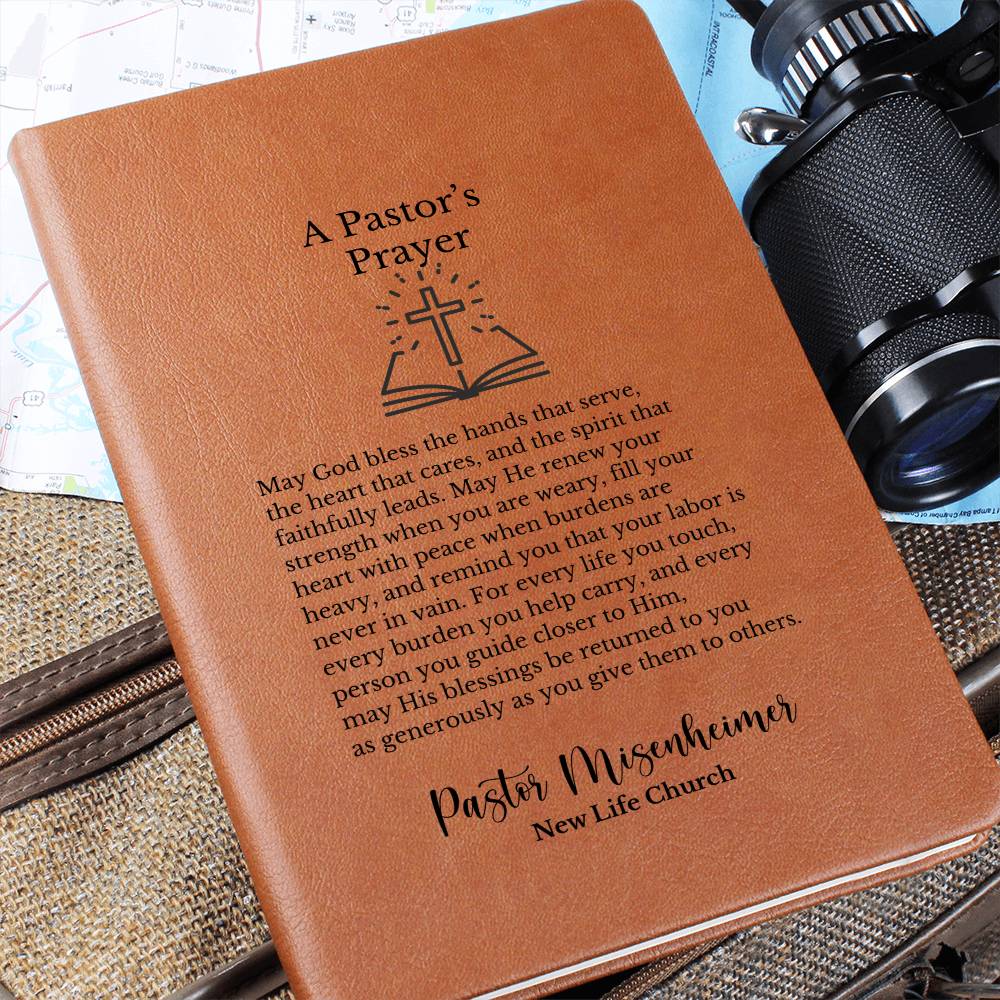 A Pastor’s
Prayer
May God bless the hands that serve,
the heart that cares, and the spirit that
faithfully leads. May He renew your
strength when you are weary, fill your
heart with peace when burdens are
heavy, and remind you that your labor is
never in vain. For every life you touch,
every burden you help carry, and every
person you guide closer to Him,
may His blessings be returned to you
as generously as you give them to others.
Pastor Misenheimer
New Life Church
Airport
Ranch
Dixie Sky
Woodlands G C
Golf Course
Buffalo Creek
Parrish
41
41
INTRACOASTAL
Park
Tampa Bay Chamber of Com